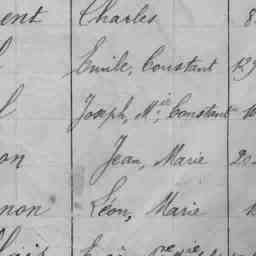 ent Charles 8
l Emile, Constant 129
l Joseph, M.ie Constant 10
on Jean, Marie 20
non Léon, Marie 1